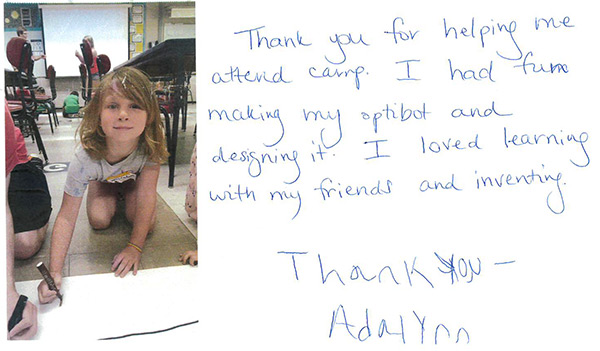 Thank you for helping me
attend camp. I had fun
making my optibot and
designing it. I loved learning
with my friends and inventing.
Thank you –
Adalynn